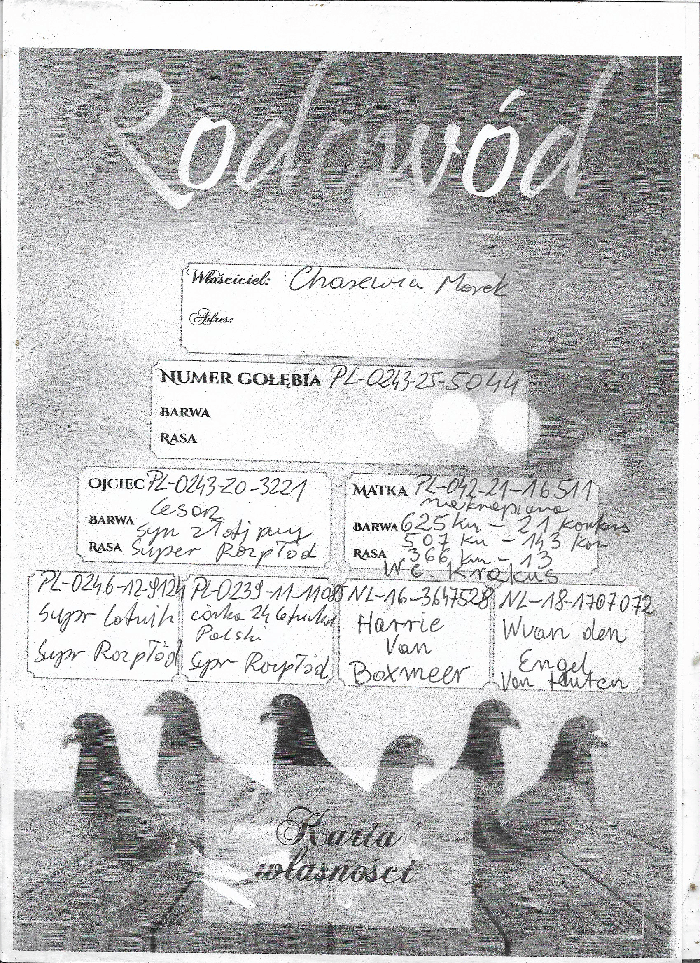 Rodowód
Właściciel: Chasewia Marek
Adres:
NUMER GOŁĘBIA PL-0243-25-5044
BARWA
RASA
OJCIEC PL-0243-20-3221
Cesarz
BARWA syn złotej pary
RASA Super Rozpłód
MATKA PL-042-21-16511
nakrapiana
BARWA 625 km - 21 konkurs
507 km - 143 kon
RASA 366 km - 13
W.G. Krakus
PL-0246-12-9124
Supr Lotnik
Supr Rozpłód
PL-0239-11-1108
córka 24 lotnika
Polski
Supr Rozpłód
NL-16-3647528
Harrie
Van
Boxmeer
NL-18-1707072
Wvan den
Engel
Van Houten
Karta
własności